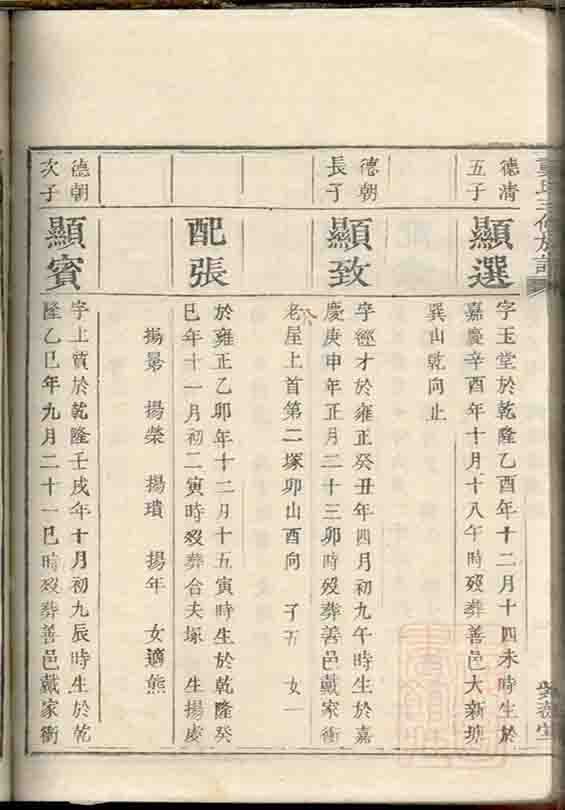 德清
五子
顯選
字玉堂於乾隆乙酉年十二月十四未時生於
嘉慶辛酉年十月十八午時歿葬善邑大新塘
巽山乾向止
德朝
長子
顯致
字經才於雍正癸丑年四月初九午時生於嘉
慶庚申年正月二十三卯時歿葬善邑戴家衝
老屋上首第二塚卯山酉向 子五 女一
配張
於雍正乙卯年十二月十五寅時生於乾隆癸
巳年十一月初二寅時歿葬合夫塚 生揚慶
揚景 揚榮 揚璜 揚年 女適熊
德朝
次子
顯賓
字上質於乾隆壬戌年十月初九辰時生於乾
隆乙巳年九月二十一巳時歿葬善邑戴家衝